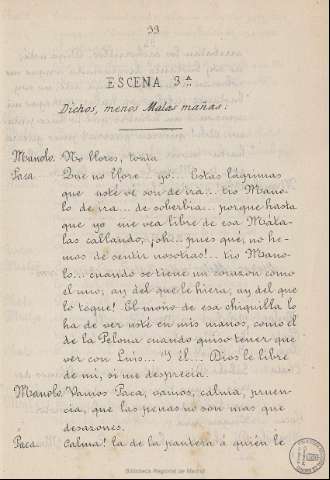 33
ESCENA 3ª
Dichos, menos Malas mañas.
Manolo. No llores, tonta
Paca. Que no llore... yo... Estas lágrimas
que usté ve son de ira... tio Mano-
lo de ira... de soberbia... porque hasta
que yo me vea libre de esa Mata-
las callando, ¡oh... pues que, no he-
mos de sentir nosotras!.. tio Mano-
lo... cuando se tiene un corazon como
el mio; ay del que le hiera, ay del que
lo toque! El moño de esa chiquilla lo
ha de ver usté en mis manos, como el
de la Pelona cuando quiso tener que
ver con Luis... Y él... Dios le libre
de mi, si me desprecia.
Manolo. Vamos Paca, vamos, calma, pruen-
cia, que las penas no son mas que
desazones.
Paca. Calma! la de la pantera á quién le
Biblioteca Regional de Madrid